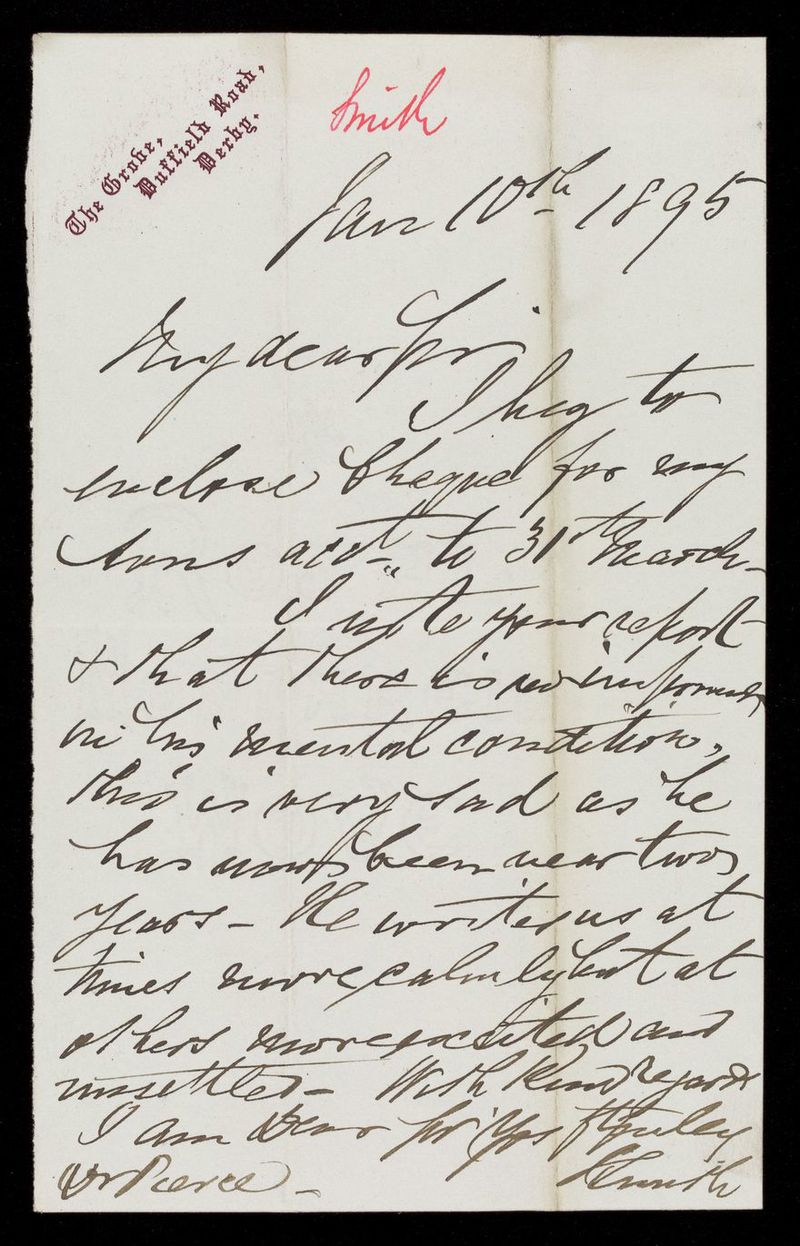 The Grove,
Duffield Road,
Derby.
Smith
Jan 10th 1895
My dear Sir
I beg to
enclose Cheque for my
sons acct. to 31st March-
I note your report
& that there is no improvemt
in his mental condition,
this is very sad as he
has now been near two
years - He writes us at
times more calmly but at
others more excited and
unsettled - With Kind regards
I am Dear Sir Yrs
Dr Pierce - Smith